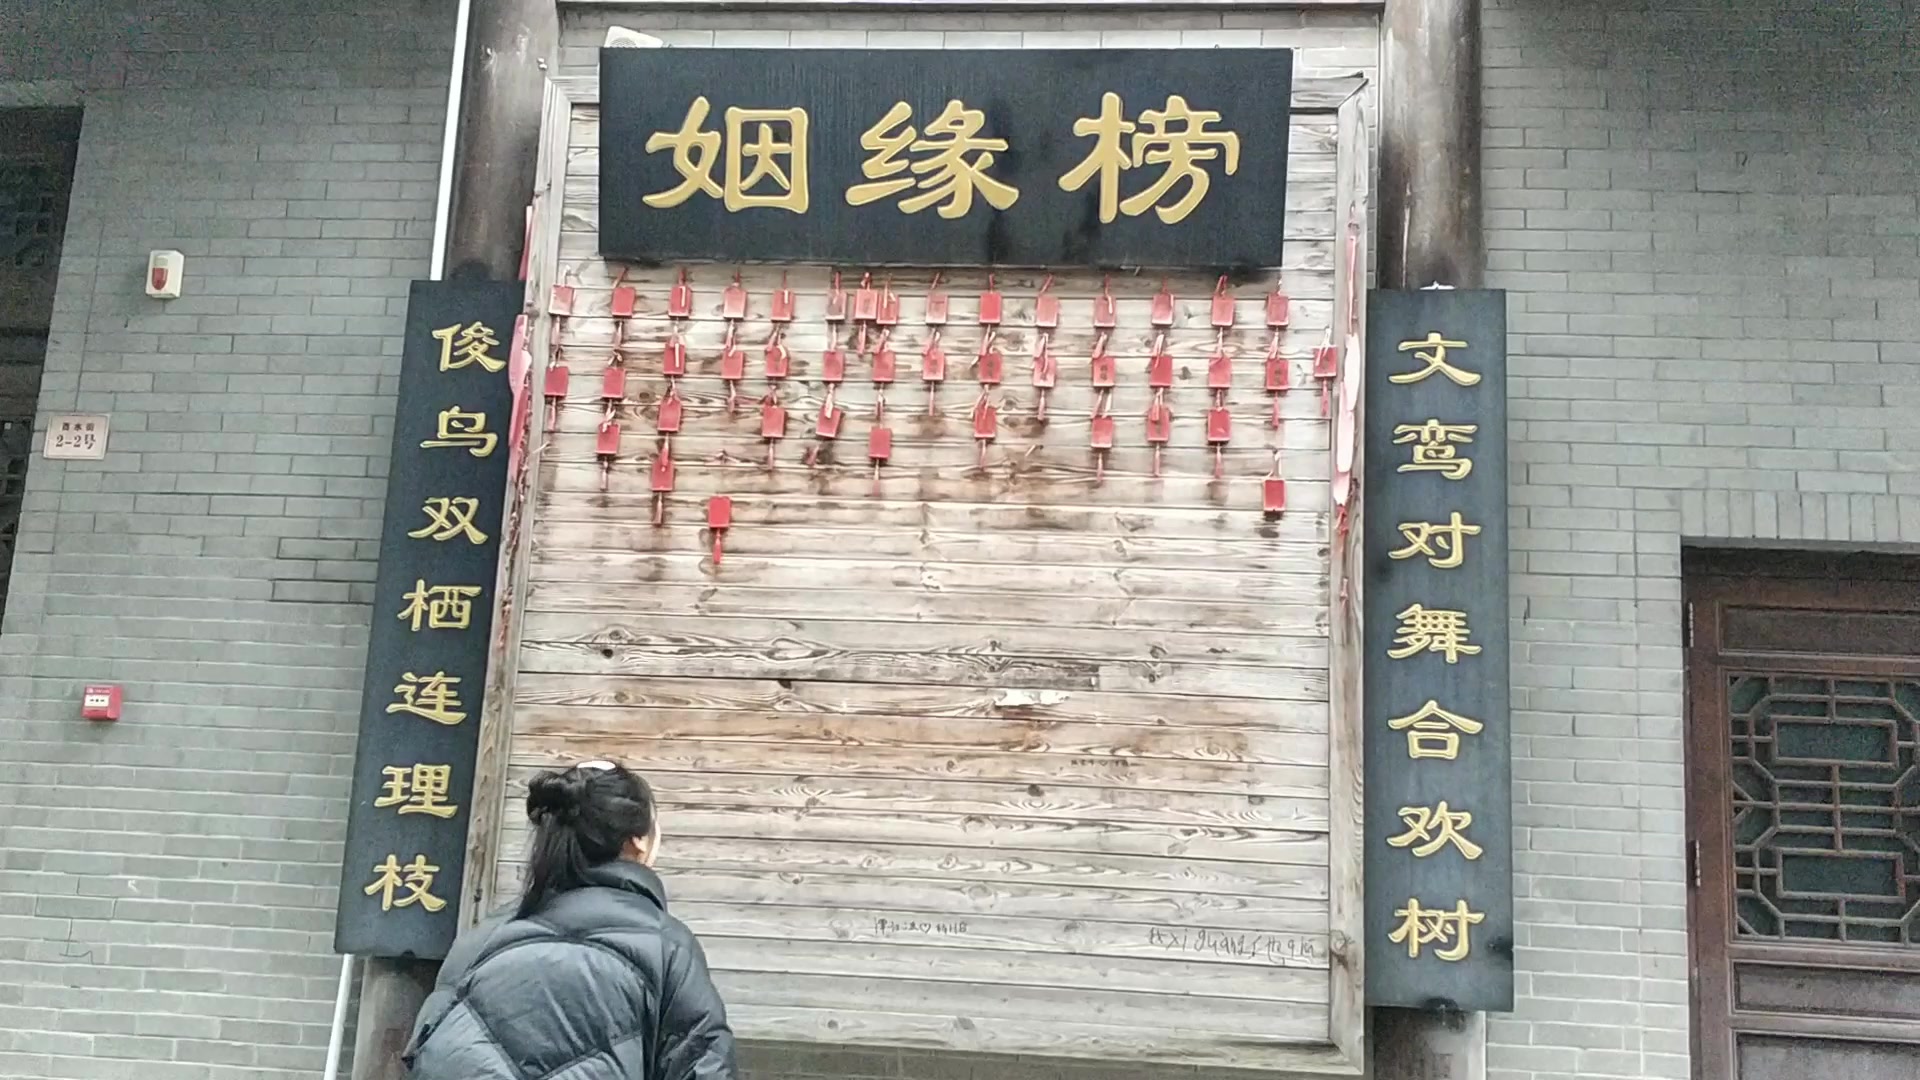 姻缘榜
文鸾对舞合欢树
俊鸟双栖连理枝
酉水街
2-2号